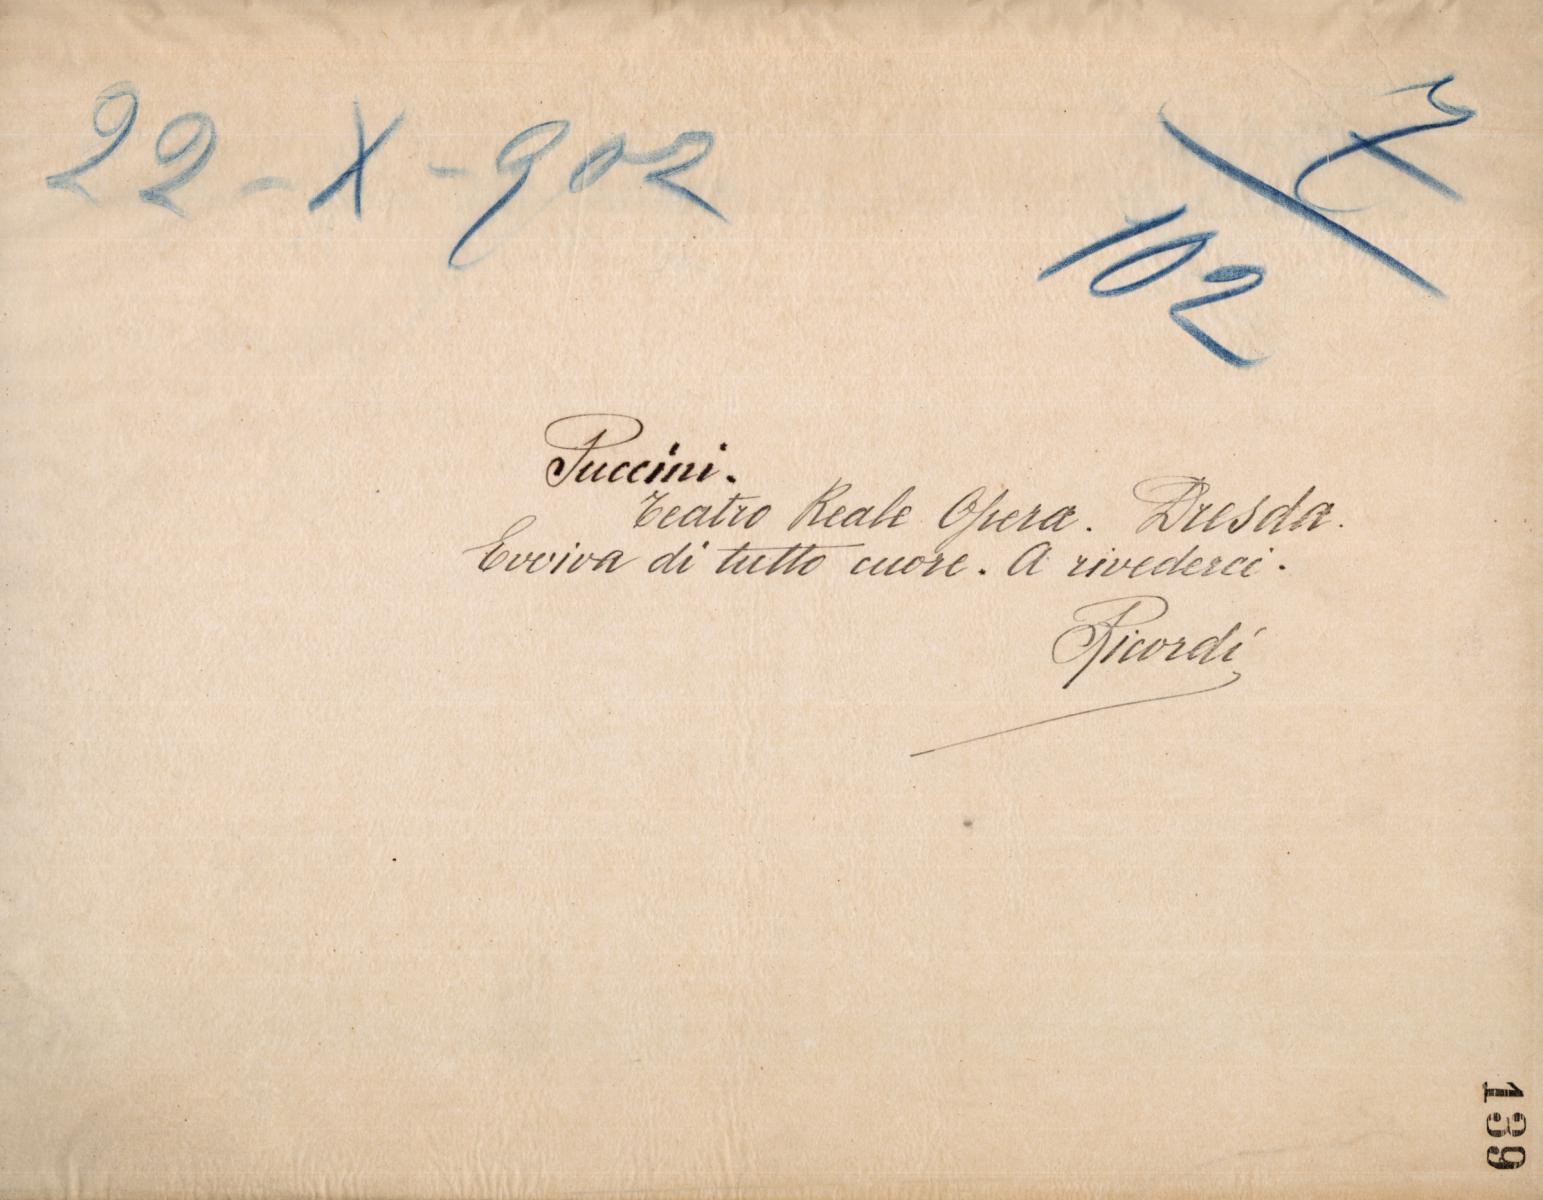 22-X-902
102
Puccini.
Teatro Reale Opera. Dresda.
Evviva di tutto cuore. A rivederci.
Ricordi
139